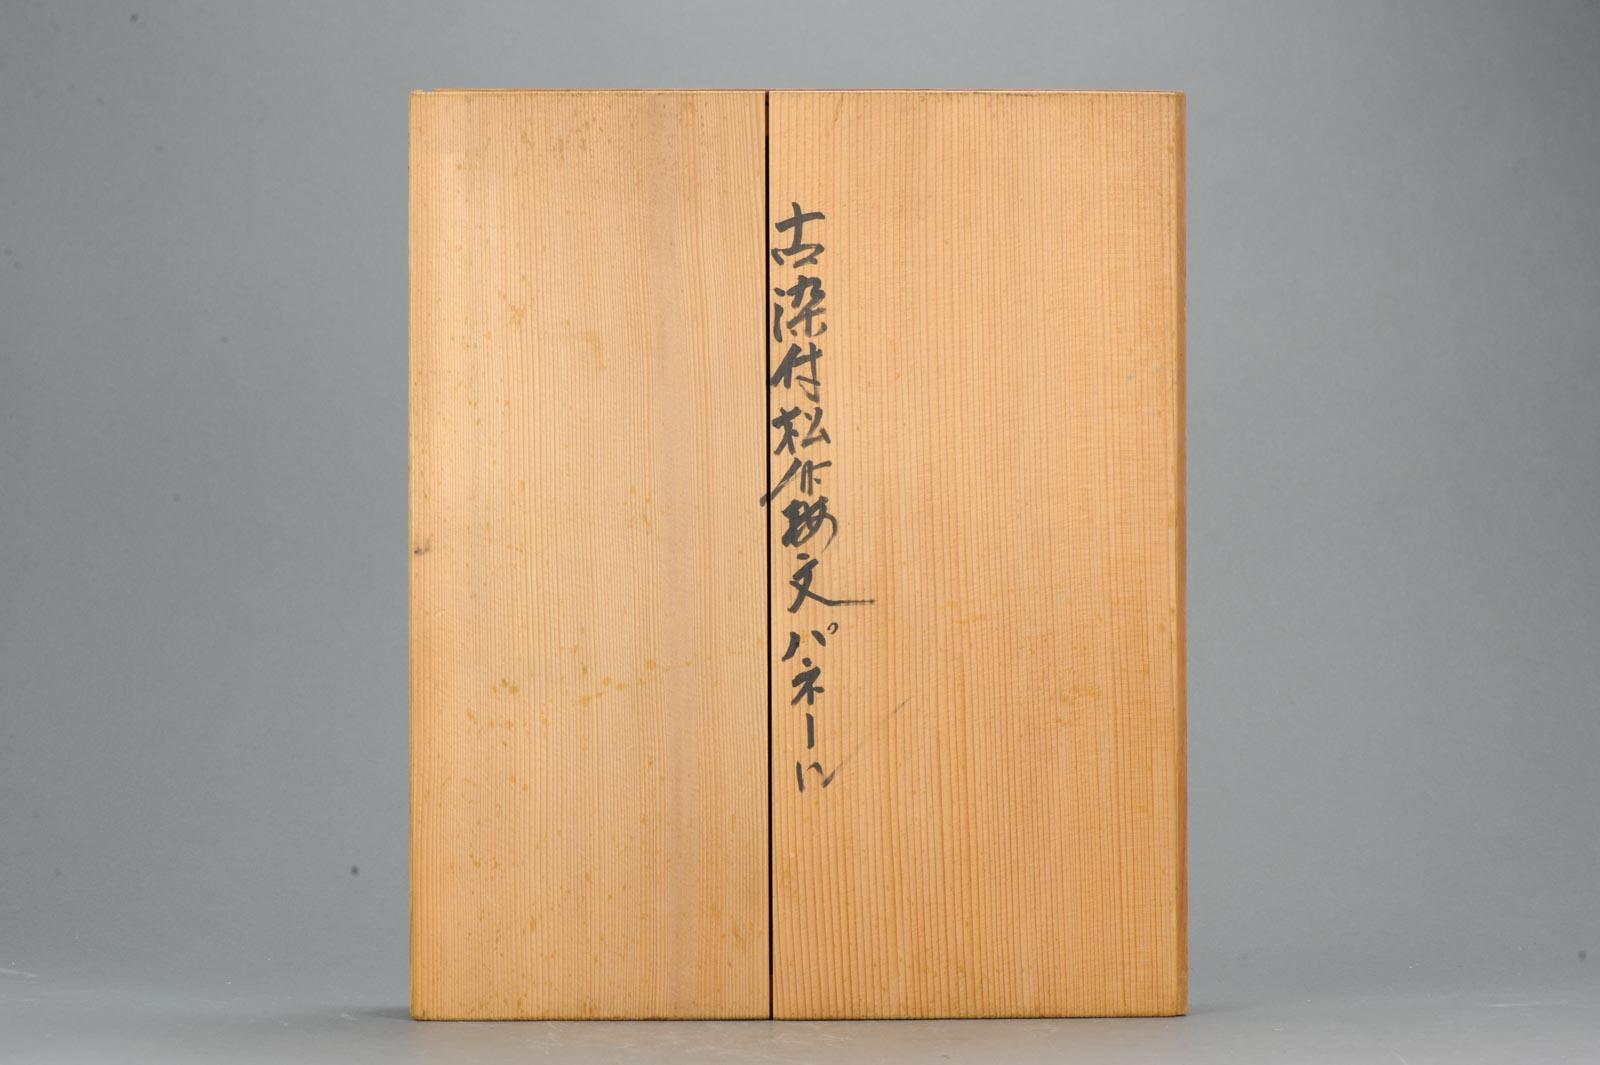 古染付松竹梅文パネール